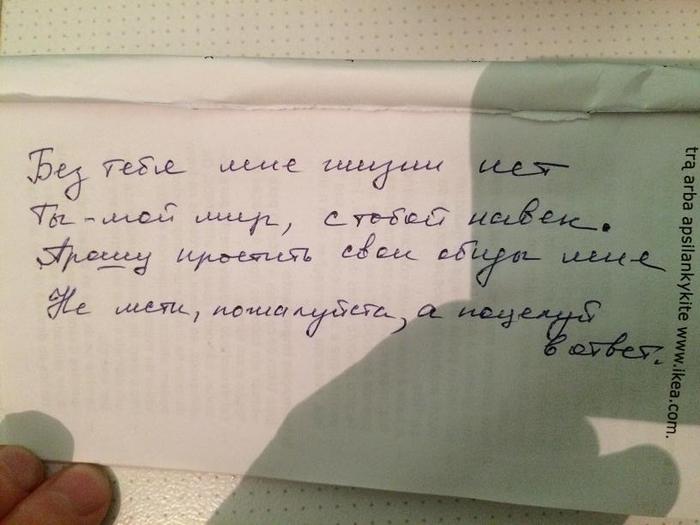 Без тебя мне жизни нет
Ты-мой мир, с тобой навек.
Прошу простить свои обиды мне
Не мсти, пожалуйста, а поцелуй
в ответ.
trą arba apsilankykite www.ikea.com.